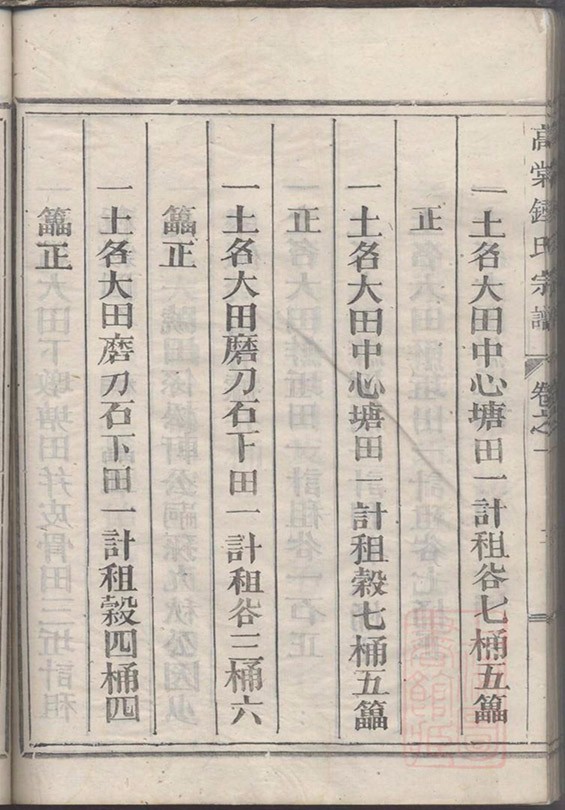 高棠鍾氏宗譜 卷之一
一土名大田中心塘田一計租谷七桶五籮
正
一土名大田中心塘田一計租穀七桶五籮
正
一土名大田磨刀石下田一計租谷三桶六
籮正
一土名大田磨刀石下田一計租穀四桶四
籮正